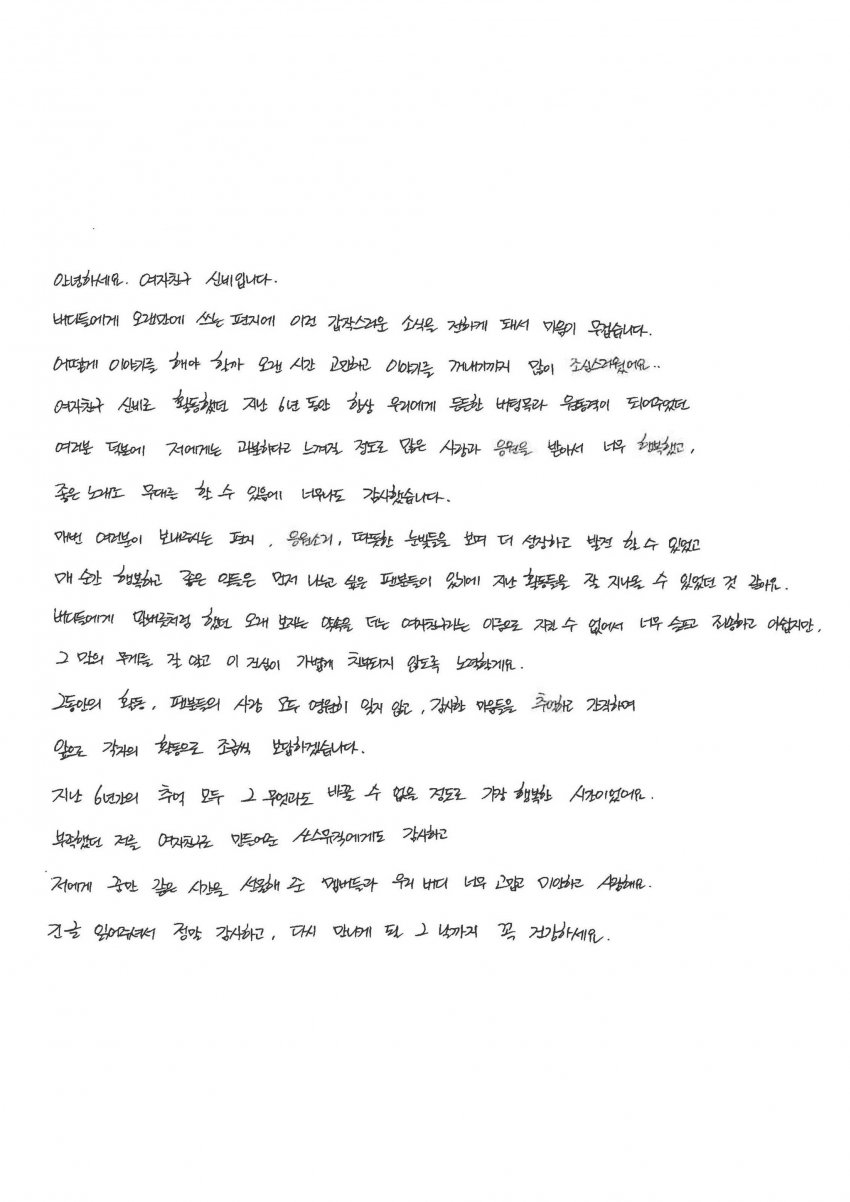 안녕하세요. 여자친구 신비입니다.
버디들에게 오랜만에 쓰는 편지에 이런 갑작스러운 소식을 전하게 돼서 마음이 무겁습니다.
어떻게 이야기를 해야 할까 오랜 시간 고민하고 이야기를 꺼내기까지 많이 조심스러웠어요..
여자친구 신비로 활동했던 지난 6년 동안 항상 우리에게 든든한 버팀목과 원동력이 되어주었던
여러분 덕분에 저에게는 과분하다고 느껴질 정도로 많은 사랑과 응원을 받아서 너무 행복했고,
좋은 노래로 무대를 할 수 있음에 너무나도 감사했습니다.
매번 여러분이 보내주시는 편지, 응원소리, 따뜻한 눈빛들을 보며 더 성장하고 발전 할 수 있었고
매 순간 행복하고 좋은 것들은 먼저 나누고 싶은 팬분들이 있기에 지난 활동들을 잘 지나올 수 있었던 것 같아요.
버디들에게 말버릇처럼 했던 오래 보자는 약속을 더는 여자친구라는 이름으로 지킬 수 없어서 너무 슬프고 죄송하고 아쉽지만,
그 말의 무게를 잘 알고 이 진심이 가볍게 치부되지 않도록 노력할게요.
그동안의 활동, 팬분들의 사랑 모두 영원히 잊지 않고, 감사한 마음들을 추억하고 간직하며
앞으로 각자의 활동으로 조금씩 보답하겠습니다.
지난 6년간의 추억 모두 그 무엇과도 바꿀 수 없을 정도로 가장 행복한 시간이었어요.
부족했던 저를 여자친구로 만들어준 쏘스뮤직에게도 감사하고
저에게 꿈만 같은 시간을 선물해 준 멤버들과 우리 버디 너무 고맙고 미안하고 사랑해요.
긴 글 읽어주셔서 정말 감사하고, 다시 만나게 될 그 날까지 꼭 건강하세요.